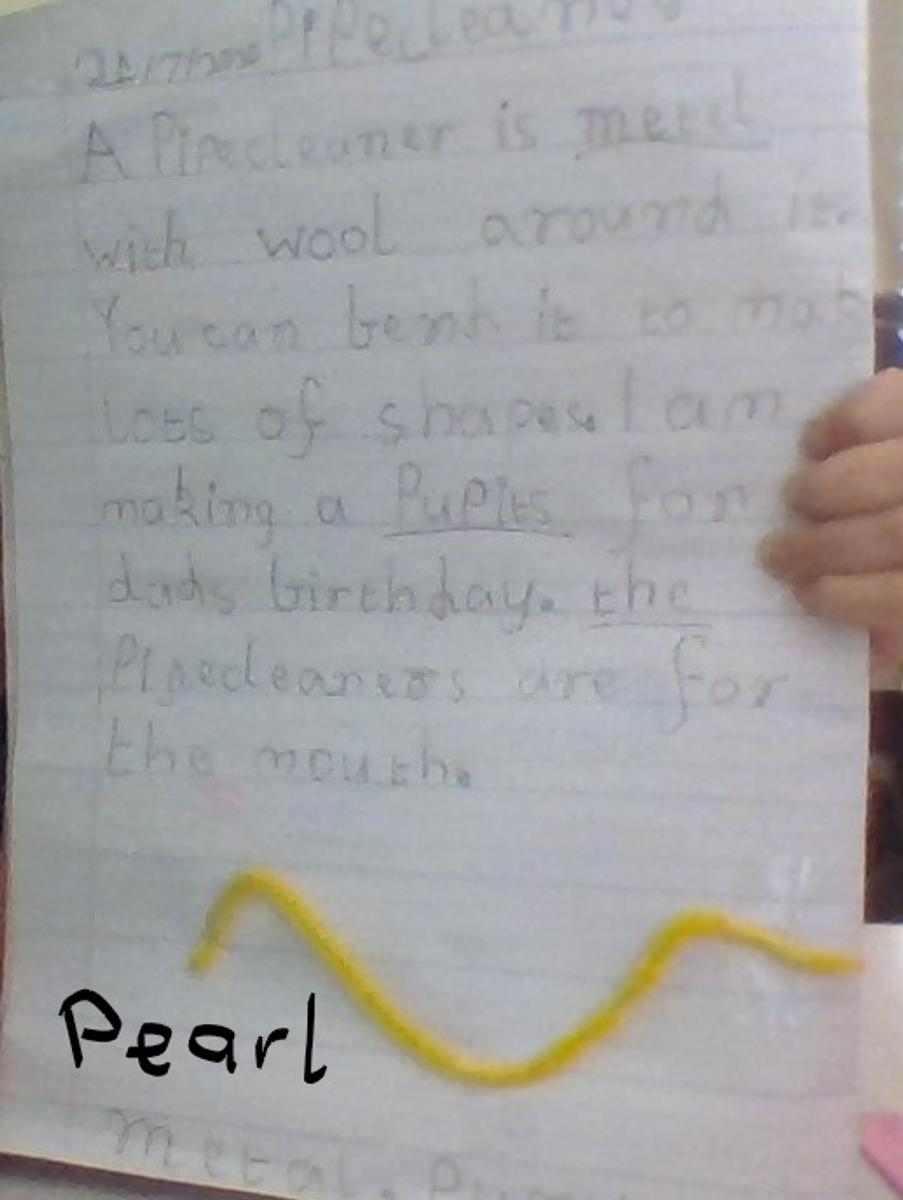 Pipecleaner
A Pipecleaner is metel
with wool around it.
You can bent it to mak
lots of shapes. I am
making a Pupits for
dads birthday. the
Pipecleaners are for
the mouth.
Pearl
metal.